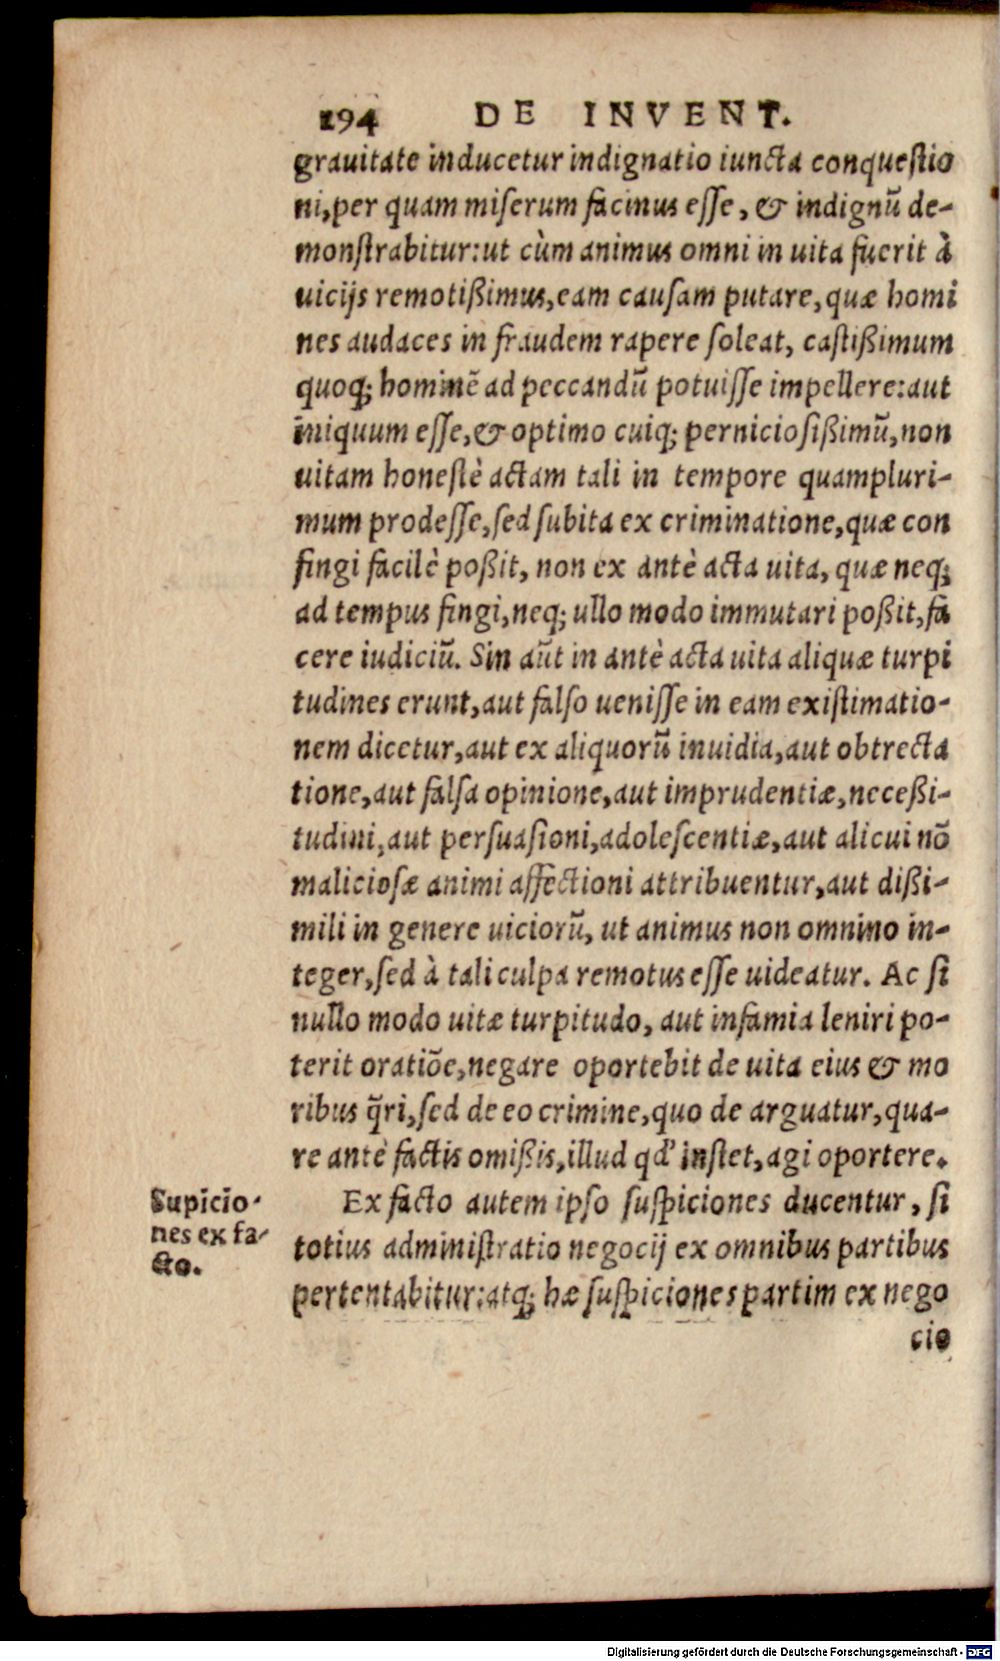 194 DE INVENT.
grauitate inducetur indignatio iuncta conquestio
ni, per quam miserum facinus esse, & indignũ de-
monstrabitur: ut cùm animus omni in uita fuerit à
uicijs remotißimus, eam causam putare, quæ homi
nes audaces in fraudem rapere soleat, castißimum
quoq; hominẽ ad peccandũ potuisse impellere: aut
iniquum esse, & optimo cuiq; perniciosißimũ, non
uitam honestè actam tali in tempore quampluri-
mum prodesse, sed subita ex criminatione, quæ con
fingi facilè poßit, non ex antè acta uita, quæ neq;
ad tempus fingi, neq; ullo modo immutari poßit, fa
cere iudiciũ. Sin aũt in antè acta uita aliquæ turpi
tudines erunt, aut falso uenisse in eam existimatio-
nem dicetur, aut ex aliquorũ inuidia, aut obtrecta
tione, aut falsa opinione, aut imprudentiæ, neceßi-
tudini, aut persuasioni, adolescentiæ, aut alicui nõ
maliciosæ animi affectioni attribuentur, aut dißi-
mili in genere uiciorũ, ut animus non omnino in-
teger, sed à tali culpa remotus esse uideatur. Ac si
nullo modo uitæ turpitudo, aut infamia leniri po-
terit oratiõe, negare oportebit de uita eius & mo
ribus q̃ri, sed de eo crimine, quo de arguatur, qua-
re antè factis omißis, illud qd' instet, agi oportere.
Supicio-
nes ex fa-
cto.
Ex facto autem ipso suspiciones ducentur, si
totius administratio negocij ex omnibus partibus
pertentabitur: atq; hæ suspiciones partim ex nego
cio
Digitalisierung gefördert durch die Deutsche Forschungsgemeinschaft - DFG